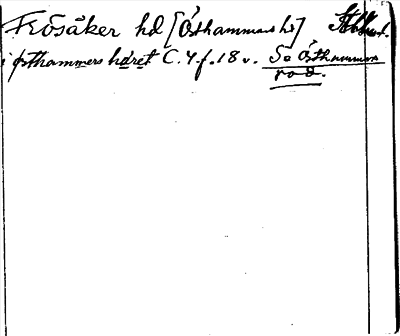 Frösåker hd [Östhammars hd]
i østhammers häret C.4.f.18 v. Se Östhammars
rad.